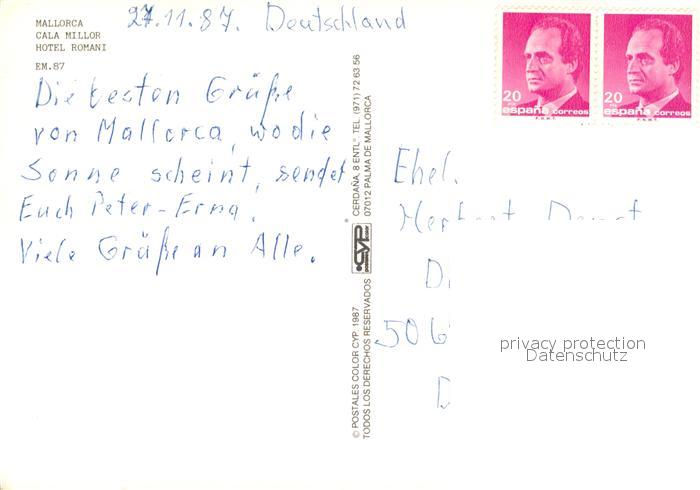 MALLORCA
CALA MILLOR
HOTEL ROMANI
EM.87
27.11.87. Deutschland
Die besten Grüße
von Mallorca, wo die
Sonne scheint, sendet
Euch Peter-Erna.
Viele Grüße an Alle.
© POSTALES COLOR CYP. 1987
TODOS LOS DERECHOS RESERVADOS
CYP
CERDAÑA, 8 ENTLº TEL. (971) 72 63 56
07012 PALMA DE MALLORCA
20
españa correos
F.N.M.T.
20
españa correos
F.N.M.T.
Ehel.
D
506
D
privacy protection
Datenschutz